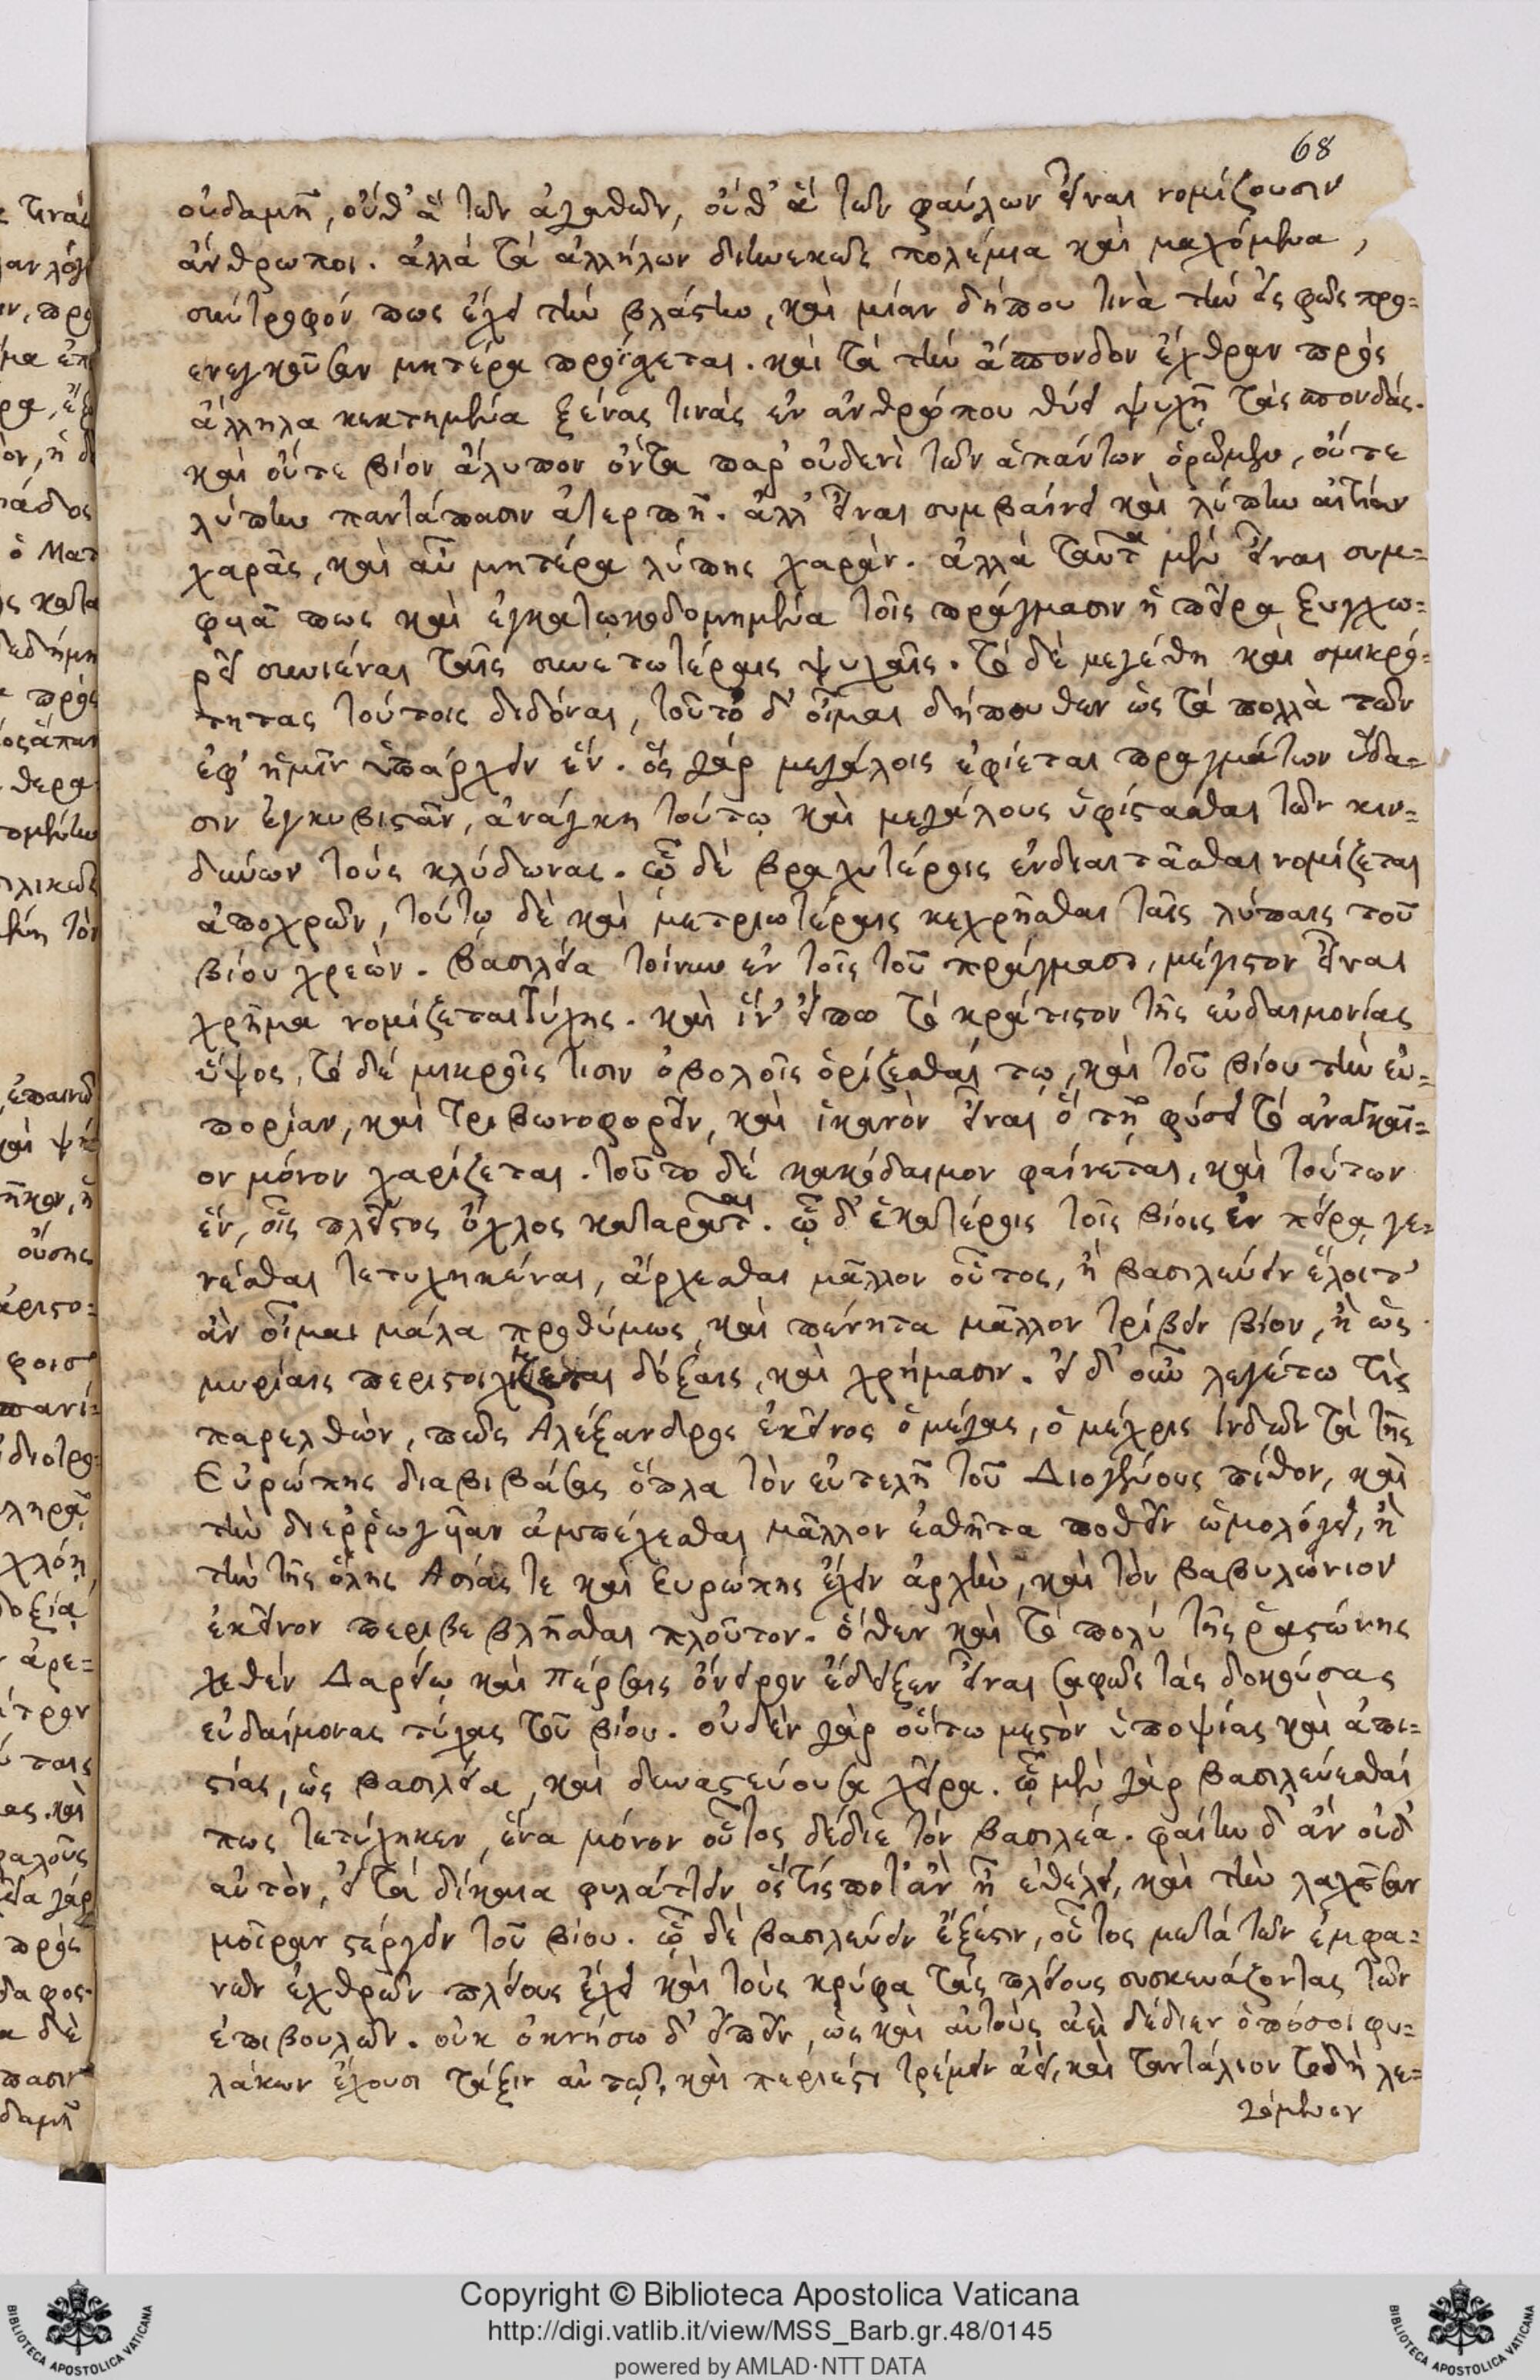 68
οὐδαμῆ, οὐθ' ἃ τῶν ἀγαθῶν, οὐθ' ἃ τῶν φαύλων εἶναι νομίζουσιν
ἄνθρωποι. ἀλλὰ τὰ ἀλλήλων διηνεκῶς πολέμια καὶ μαχόμενα,
σύντροφόν πως ἔχει τὴν βλάστην, καὶ μίαν δήπου τινὰ τὴν εἰς φῶς προ=
ενεγκοῦσαν μητέρα προΐσχεται. καὶ τὰ τὴν ἄσπονδον ἔχθραν πρὸς
ἄλληλα κεκτημένα ξένας τινὰς ἐν ἀνθρώπου θύει ψυχῇ τὰς σπονδάς.
καὶ οὔτε βίον ἄλυπον ὄντα παρ' οὐδενὶ τῶν ἁπάντων ὁρῶμεν, οὔτε
λύπην παντάπασιν ἀτερπῆ. ἀλλ' εἶναι συμβαίνει καὶ λύπην αἰτίαν
χαρᾶς, καὶ αὖ μητέρα λύπης χαράν. ἀλλὰ ταῦτα μὲν εἶναι συμ=
φυᾶ πως καὶ ἐγκατῳκοδομημένα τοῖς πράγμασιν ἡ πεῖρα ξυγχω=
ρεῖ συνιέναι ταῖς συνετωτέραις ψυχαῖς. τὸ δὲ μεγέθη καὶ σμικρό=
τητας τούτοις διδόναι, τοῦτο δ' οἶμαι δήπουθεν ὡς τὰ πολλὰ τῶν
ἐφ' ἡμῖν ὑπάρχειν ἕν. ὃς γὰρ μεγάλοις ἐφίεται πραγμάτων ὕδα=
σιν ἐγκυβιστᾶν, ἀνάγκη τούτῳ καὶ μεγάλους ὑφίστασθαι τῶν κιν=
δύνων τοὺς κλύδωνας. ᾧ δὲ βραχυτέροις ἐνδιαιτᾶσθαι νομίζεται
ἀποχρῶν, τούτῳ δὲ καὶ μετριωτέραις κεχρῆσθαι ταῖς λύπαις τοῦ
βίου χρεών. βασιλεία τοίνυν ἐν τοῖς τοῦ πράγμασι, μέγιστον εἶναι
χρῆμα νομίζεται τύχης. καὶ ἵν' εἴπω τὸ κράτιστον τῆς εὐδαιμονίας
ὕψος, τὸ δὲ μικροῖς τισιν ὀβολοῖς ὁρίζεσθαί τῳ, καὶ τοῦ βίου τὴν εὐ=
πορίαν, καὶ τριβωνοφορεῖν, καὶ ἱκανὸν εἶναι ὅ τῇ φύσει τὸ ἀναγκαῖ=
ον μόνον χαρίζεται. τοῦτο δὲ κακόδαιμον φαίνεται, καὶ τούτων
ἕν, οἷς πλεῖστος ὄχλος καταρᾶται. ᾧ δ' ἑκατέροις τοῖς βίοις ἐν πείρᾳ γε=
νέσθαι τετυχηκέναι, ἄρχεσθαι μᾶλλον οὗτος, ἢ βασιλεύειν ἕλοιτ'
ἂν οἶμαι μάλα προθύμως, καὶ πένητα μᾶλλον τρίβειν βίον, ἢ ὡς
μυρίαις περιστοιχίζεσθαι δόξαις, καὶ χρήμασιν. εἰ δ' οὖν λεγέτω τίς
παρελθών, πῶς Ἀλέξανδρος ἐκεῖνος ὁ μέγας, ὁ μέχρις Ἰνδῶν τὰ τῆς
Εὐρώπης διαβιβάσας ὅπλα τὸν εὐτελῆ τοῦ Διογένους πίθον, καὶ
τὴν διεῤῥωγῆαν ἀμπέχεσθαι μᾶλλον ἐσθῆτα ποθεῖν ὡμολόγει, ἢ
τὴν τῆς ὅλης Ἀσίας τε καὶ Εὐρώπης ἔχειν ἀρχήν, καὶ τὸν Βαβυλώνιον
ἐκεῖνον περιβεβλῆσθαι πλοῦτον. ὅθεν καὶ τὸ πολὺ τῆς ῥᾳστώνης
χεθὲν Δαρείῳ καὶ Πέρσαις ὄνειρον ἔδειξεν εἶναι σαφῶς τὰς δοκούσας
εὐδαίμονας τύχας τοῦ βίου. οὐδὲν γὰρ οὕτω μεστὸν ὑποψίας καὶ ἀπι=
στίας, ὡς βασιλεία, καὶ δυναστεύουσα χεῖρα. ᾧ μὲν γὰρ βασιλεύεσθαί
πως τετύχηκεν, ἕνα μόνον οὗτος δέδιε τὸν βασιλέα. φαίην δ' ἂν οὐδ'
αὐτὸν, εἰ τὰ δίκαια φυλάττειν ὅστις ποτ' ἂν ᾖ ἐθέλει, καὶ τὴν λαχοῦσαν
μοῖραν στέργειν τοῦ βίου. ᾧ δὲ βασιλεύειν ἔξεστιν, οὗτος μετὰ τῶν ἐμφα=
νῶν ἐχθρῶν πλείους ἔχει καὶ τοὺς κρύφα τὰς πλείους συσκευάζοντας τῶν
ἐπιβουλῶν. οὐκ ὀκνήσω δ' εἰπεῖν, ὡς καὶ αὐτοὺς ἀεὶ δέδιεν ὁπόσοι φυ=
λάκων ἔχουσι τάξιν αὐτῷ, καὶ περίεστι τρέμειν ἀεί, καὶ ταντάλιον τὸ δὴ λε=
γόμενον
Copyright © Biblioteca Apostolica Vaticana
http://digi.vatlib.it/view/MSS_Barb.gr.48/0145
powered by AMLAD·NTT DATA
BIBLIOTECA APOSTOLICA VATICANA
BIBLIOTECA APOSTOLICA VATICANA